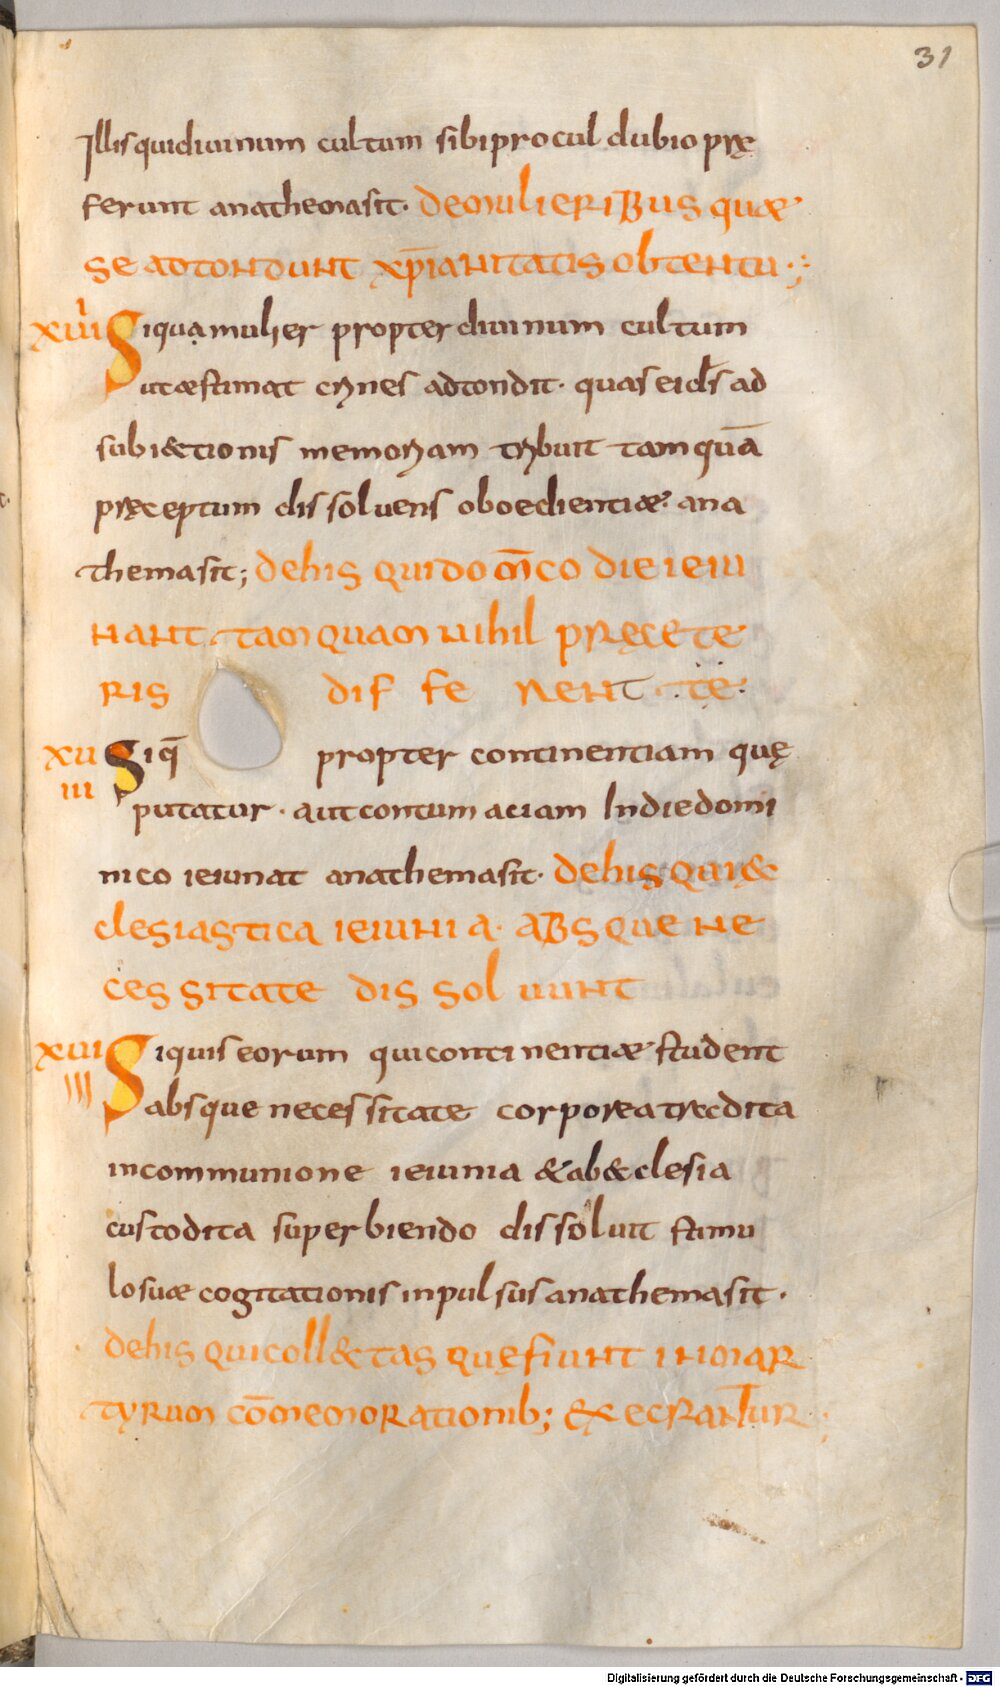 31
Illis qui diuinum cultum sibi procul dubio prę
ferunt anathema sit. de mulieribus quae
se adtondunt xp̄ianitatis obtentu.;
xuii Si qua mulier propter diuinum cultum
ut aestimat crines adtondit. quas ei d̄s ad
subiectionis memoriam tribuit tamquā
pręceptum dissoluens oboedientiae. ana
thema sit; de his qui dom̄co die ieiu
nant tamquam nihil pręcete
ris differentte.
xuiii Si q̄ propter continentiam quę
putatur. aut contumaciam In die domi
nico ieiunat anathema sit. de his qui ę&
clesiastica ieiunia. absque ne
cessitate dissoluunt
xuiiii Si quis eorum qui continentiae student
absque necessitate corporea tredita
in communione ieiunia & ab &clesia
custodita superbiendo dissoluit stimu
lo suae cogitationis inpulsus anathema sit.
de his qui coll&tas quę fiunt in mar
tyrum cōmemorationib; execrantur;
Digitalisierung gefördert durch die Deutsche Forschungsgemeinschaft - DFG